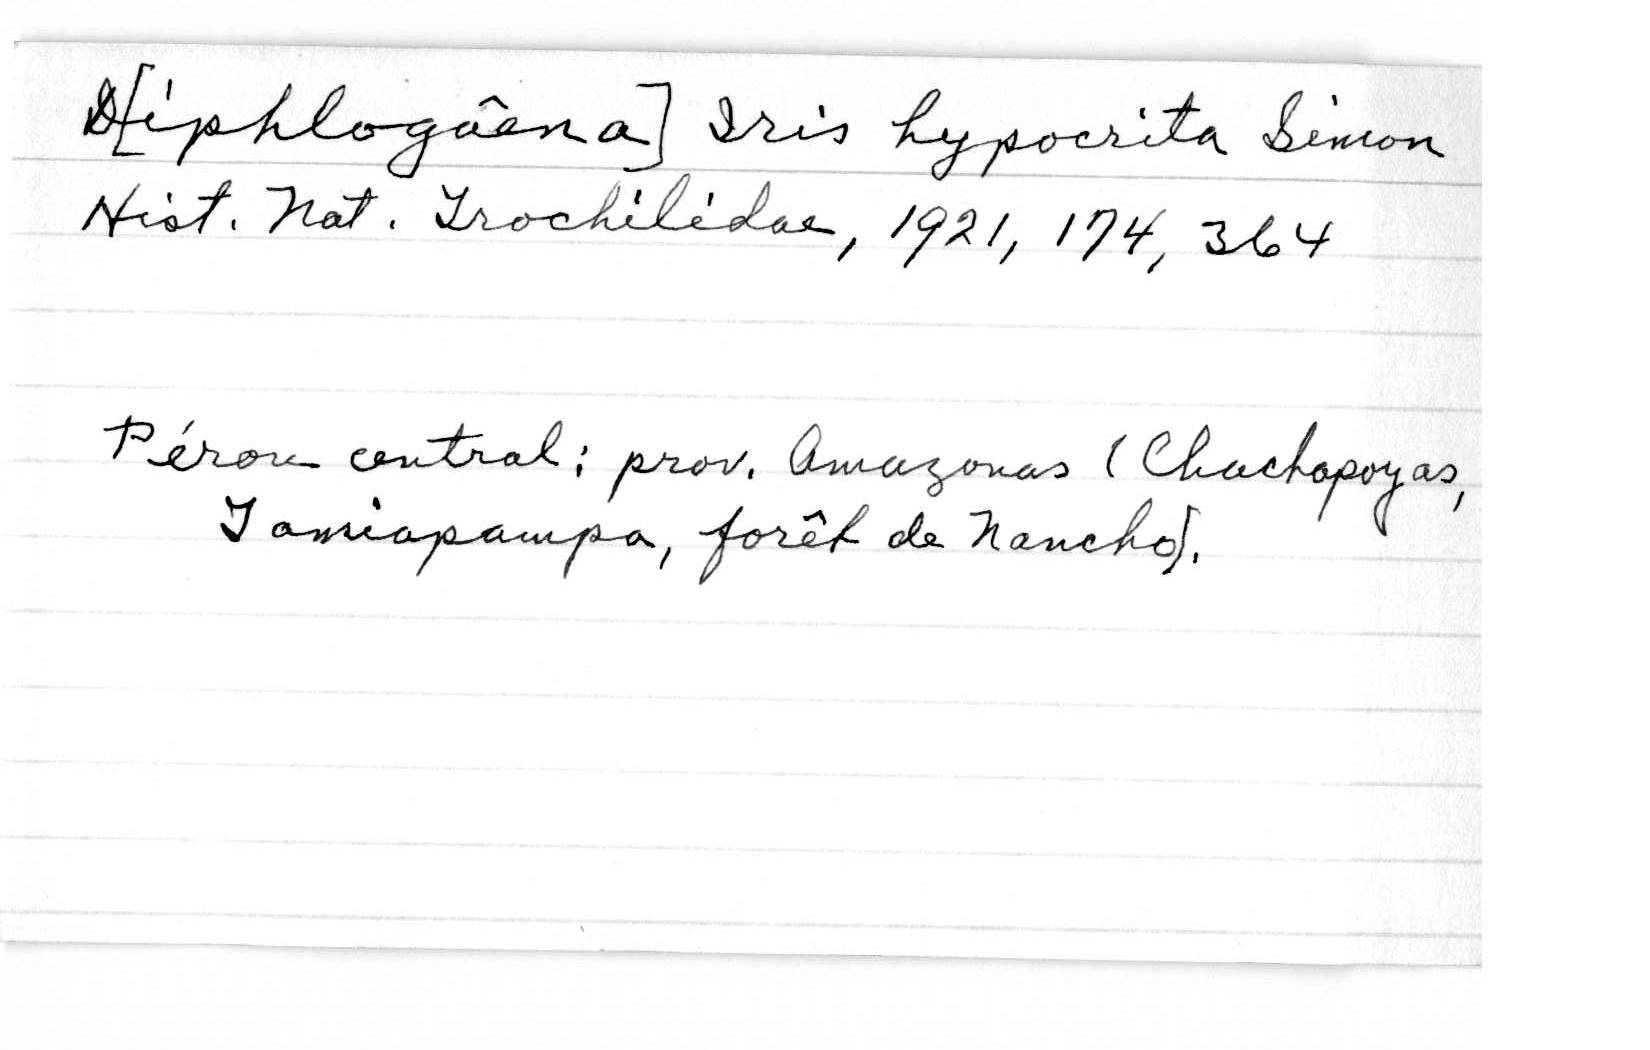 D[iphlogâena] Iris hypocrita Simon
Hist. Nat. Trochilidae, 1921, 174, 364
Pérou central; prov. Amazonas (Chachapoyas,
Tamiapampa, forêt de Nancho).